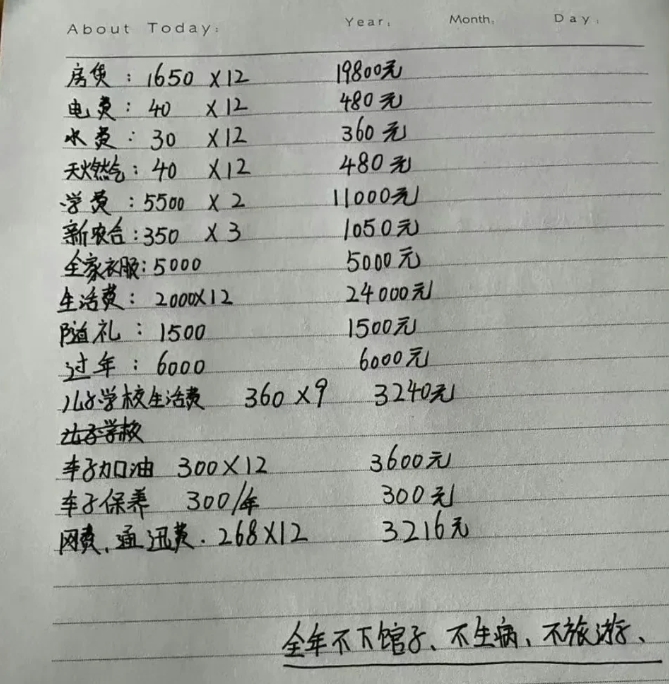 About Today: Year. Month. Day.
房贷：1650 ×12 19800元
电费：40 ×12 480元
水费：30 ×12 360元
天燃气：40 ×12 480元
学费：5500 ×2 11000元
新农合：350 ×3 1050元
全家衣服：5000 5000元
生活费：2000×12 24000元
随礼：1500 1500元
过年：6000 6000元
儿子学校生活费 360×9 3240元
车子加油 300×12 3600元
车子保养 300/年 300元
网费、通讯费.268×12 3216元
全年不下馆子、不生病、不旅游、